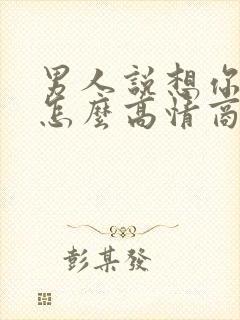 男人說想你
怎麼高情商
彭某發